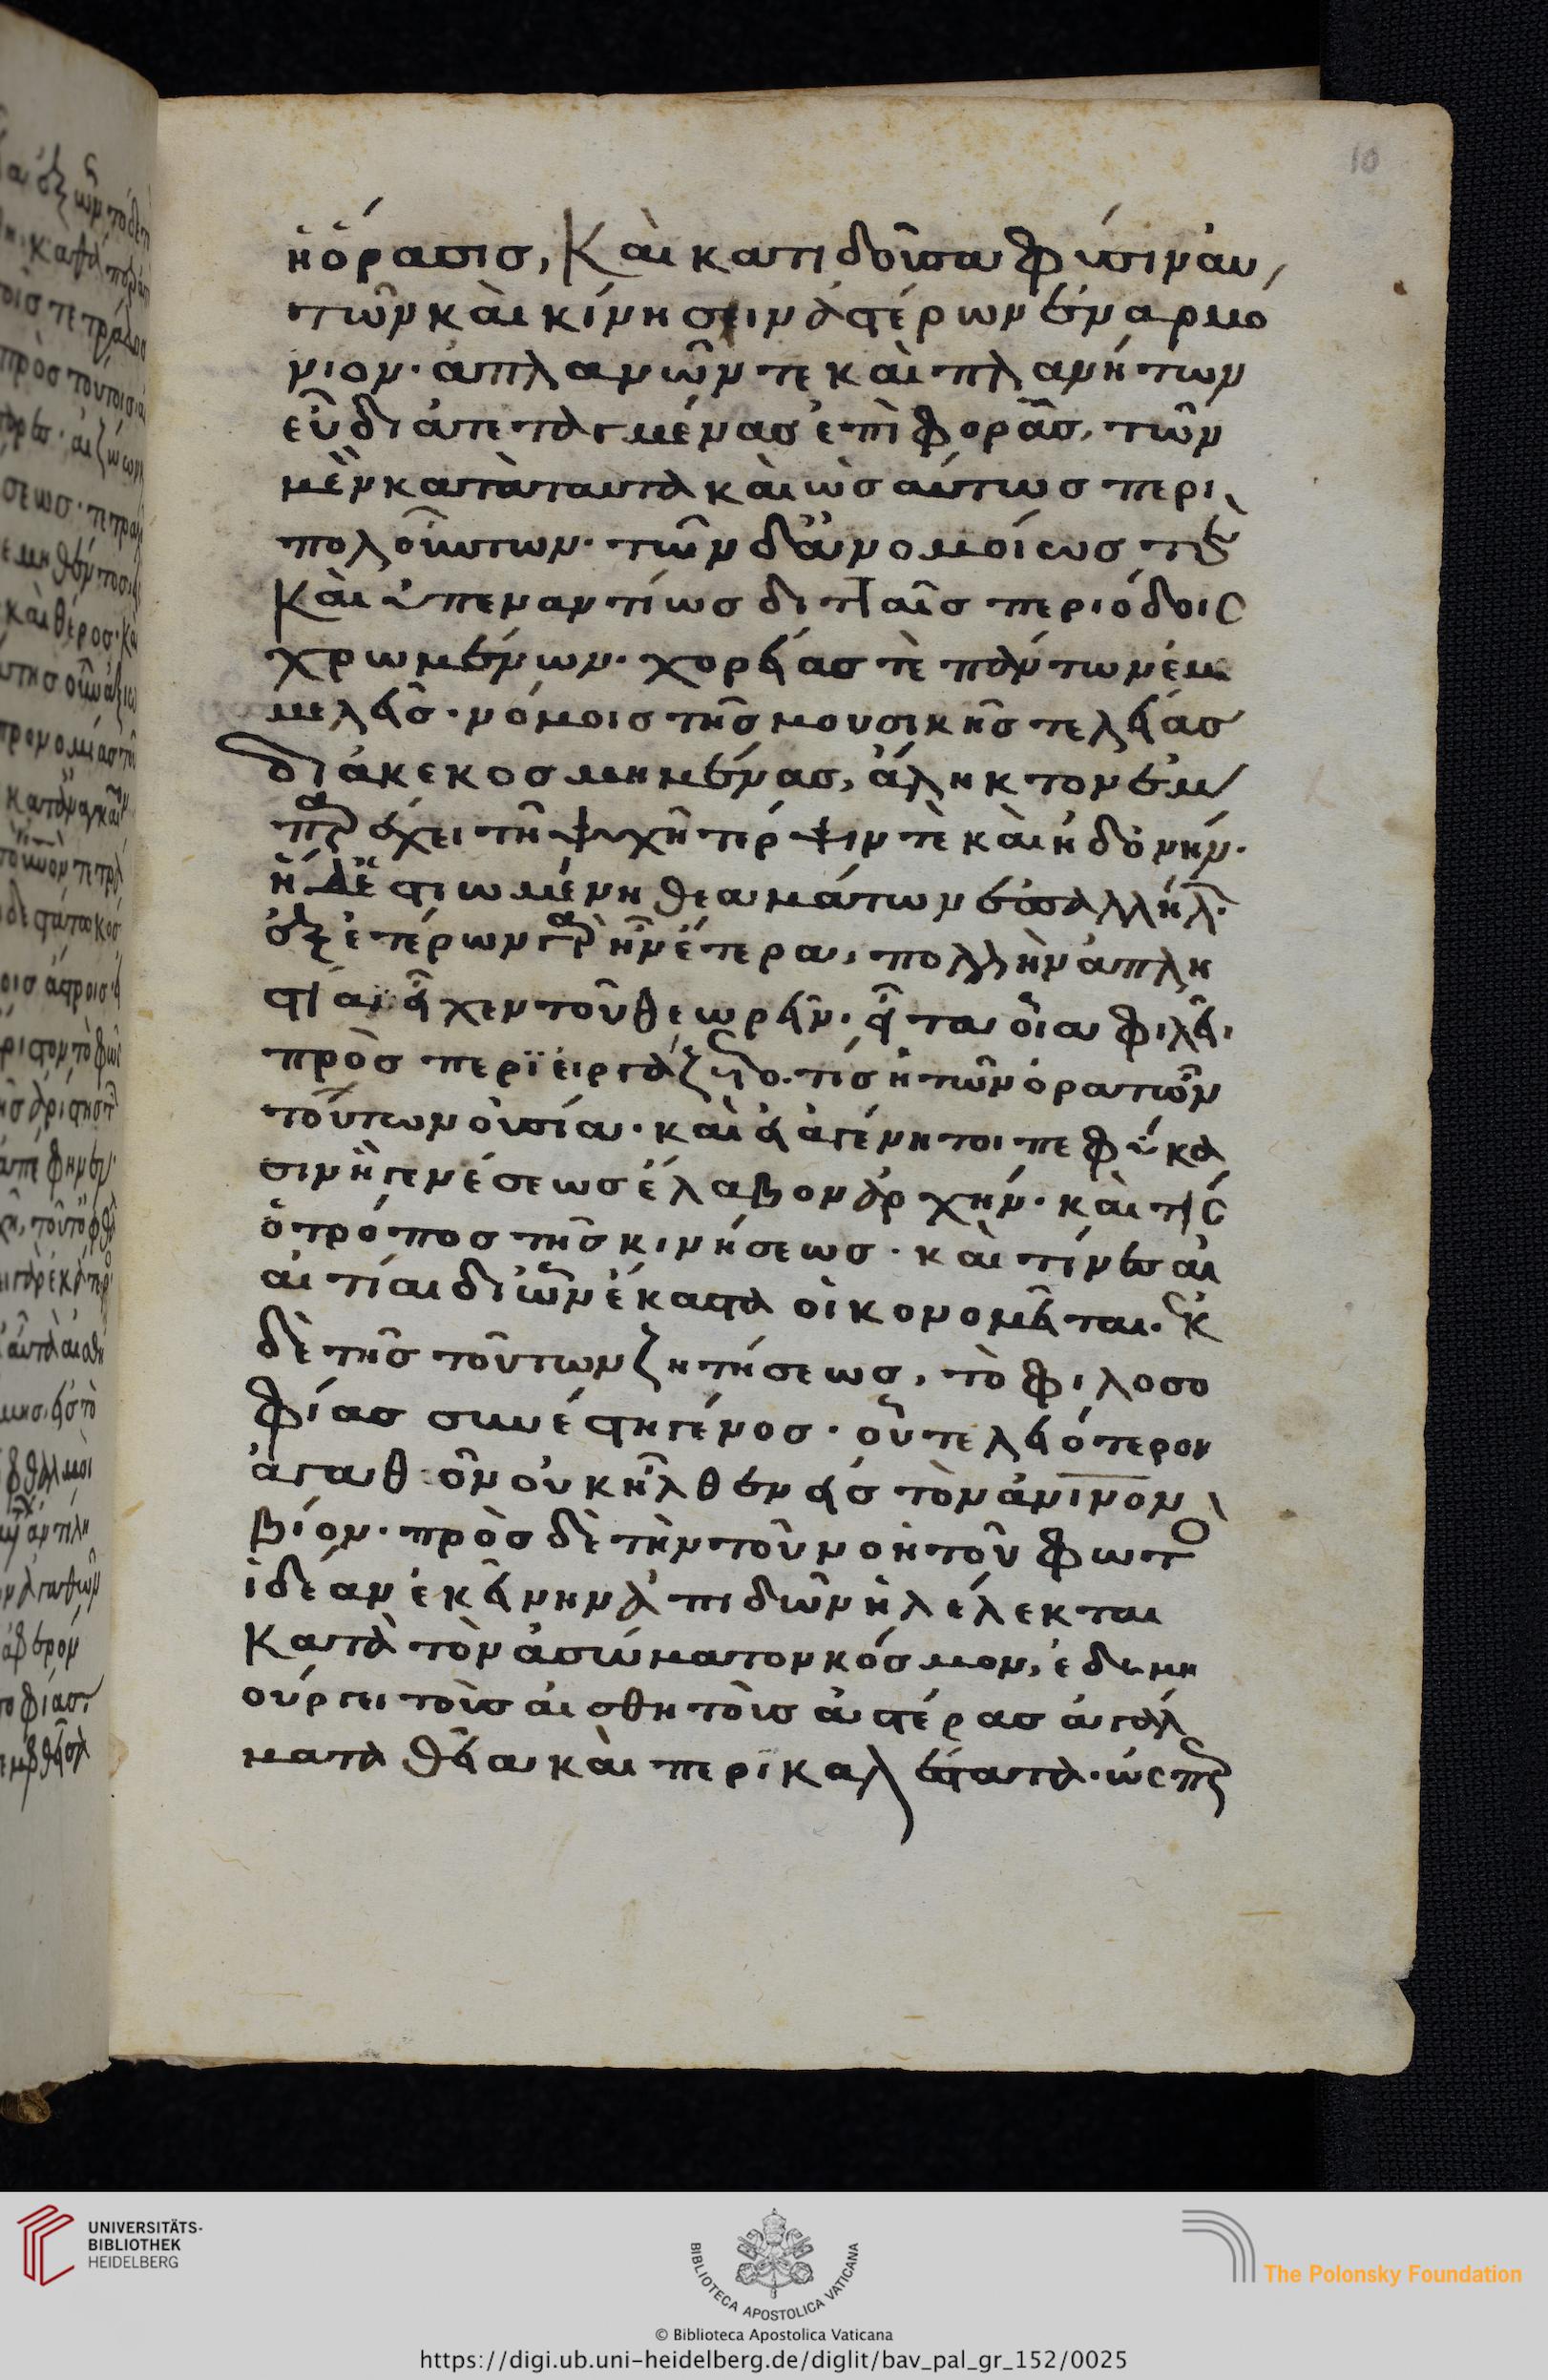 10
ἡ ὅρασις, Καὶ κατιδοῦσα φύσιν ἀυ
τῶν καὶ κίνησιν ἀστέρων ἐναρμό
νιον· ἀπλανῶν τε καὶ πλανήτων
εὖ διατεταγμένας ἐπὶ φορᾶς, τῶν
μὲν κατὰ ταυτὰ καὶ ὡσαύτως περι
πολούντων· τῶν δ' ἀνομοίως τε
Καὶ ὑπεναντίως διτταῖς περιόδοις
χρωμένων· χορείας τὲ πάντων ἐμ
μελεῖς· νόμοις τῆς μουσικῆς τελείας
διακεκοσμημένας, ἄληκτον ἐμ
παρέχει τῆ ψυχῆ τέρψιν τὲ καὶ ἡδονήν·
ἡ δὲ ἑστιωμένη θεαμάτων ἐπαλλήλ·
ἐξ ἑτέρων γὰρ ἦν ἕτερα, πολλὴν ἀπλη
στίαν εἶχεν τοῦ θεωρεῖν· εἶτα οἷα φιλεῖ
προσπεριειργάζετο· τίς ἡ τῶν ὁρατῶν
τούτων οὐσία· καὶ εἰ ἀγένητοι πεφύκα
σιν ἢ γενέσεως ἔλαβον ἀρχήν· καὶ τίς
ὁ τρόπος τῆς κινήσεως· καὶ τίνες αἱ
αἰτίαι δι' ὧν ἕκαστα οἰκονομεῖται· ἐκ
δὲ τῆς τούτων ζητήσεως, τὸ φιλοσο
φίας συνέστη γένος· οὗ τελειότερον
ἀγαθὸν οὐκ ἦλθεν εἰς τὸν ἀνινον
βίον· πρὸς δὲ τὴν τοῦ νοητοῦ φωτο
ἰδέαν ἐκείνην ἀπιδὼν ἡ λέλεκται
Κατὰ τὸν ἀσώματον κόσμον, ἐδημι
ούργει τοῖς αἰσθητοῖς ἀστέρας ἀγάλ
ματα θεῖα καὶ περικαλλέστατα· ὡσπερ
UNIVERSITÄTS-
BIBLIOTHEK
HEIDELBERG
BIBLIOTECA APOSTOLICA VATICANA
The Polonsky Foundation
© Biblioteca Apostolica Vaticana
https://digi.ub.uni-heidelberg.de/diglit/bav_pal_gr_152/0025